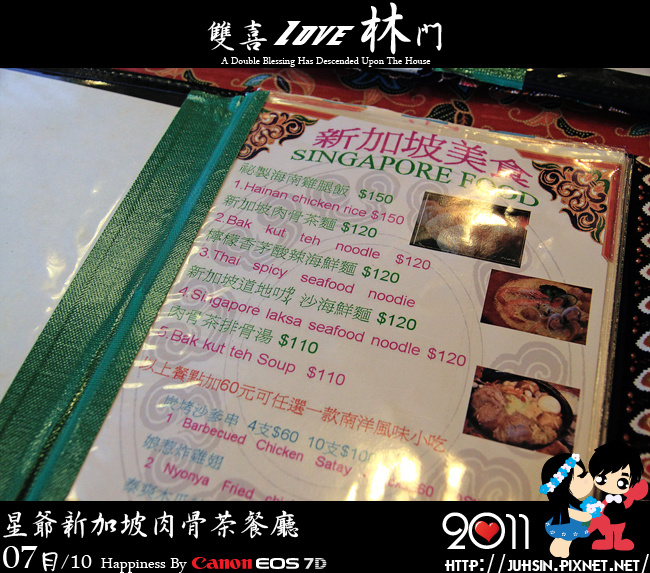 雙喜 LOVE 林門
A Double Blessing Has Descended Upon The House
新加坡美食
SINGAPORE FOOD
祕製海南雞腿飯 $150
1.Hainan chicken rice $150
新加坡肉骨茶麵 $120
2.Bak kut teh noodle $120
檸檬香茅酸辣海鮮麵 $120
3.Thai spicy seafood noodie
新加坡道地叻沙海鮮麵 $120
4.Singapore laksa seafood noodle $120
肉骨茶排骨湯 $110
5.Bak kut teh Soup $110
以上餐點加60元可任選一款南洋風味小吃
炭烤沙爹串 4支$60 10支$100
1 Barbecued Chicken Satay
娘惹炸雞翅
2 Nyonya Fried
星爺新加坡肉骨茶餐廳
07月/10 Happiness By Canon EOS 7D
2011
HTTP://JUHSIN.PIXNET.NET/